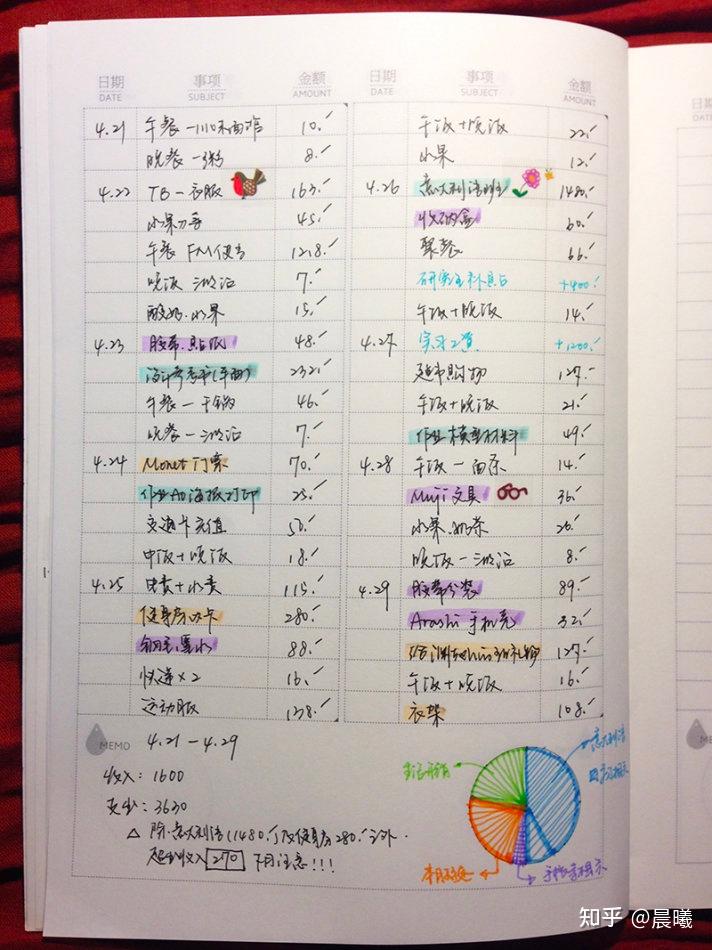 日期 事项 金额
DATE SUBJECT AMOUNT
4.21 午餐一 10.-
晚餐一粥 8.-
4.22 TB一衣服 163.-
水果 45.-
午餐 FM便当 12.8.-
晚饭 7.-
酸奶.水果 15.-
4.23 胶带.贴纸 48.-
设计参考书(平面) 232.-
午餐一干锅 46.-
晚餐一 7.-
4.24 Monet门票 70.-
作业A0海报打印 25.-
交通卡充值 50.-
中饭+晚饭 18.-
4.25 电费+水费 115.-
健身房办卡 280.-
钢笔墨水 88.-
快递×2 16.-
运动服 138.-
日期 事项 金额
DATE SUBJECT AMOUNT
午饭+晚饭 22.-
水果 12.-
4.26 意大利语班 1480.-
收纳盒 60.-
聚餐 66.-
研究生补贴 +400.-
午饭+晚饭 14.-
4.27 实习工资 +1200.-
超市购物 127.-
午饭+晚饭 21.-
作业模型材料 49.-
4.28 午饭一面条 14.-
Muji文具 36.-
水果.奶茶 26.-
晚饭一 8.-
4.29 胶带分装 89.-
Arashi手机壳 32.-
127.-
午饭+晚饭 16.-
衣架 108.-
MEMO 4.21-4.29
收入: 1600
支出: 3630
△ 除意大利语(1480.-)及健身房280.-之外.
超出收入 270 下月注意!!!
生活开销
意大利语
学习相关
手帐相关
知乎 @晨曦
日期
DATE